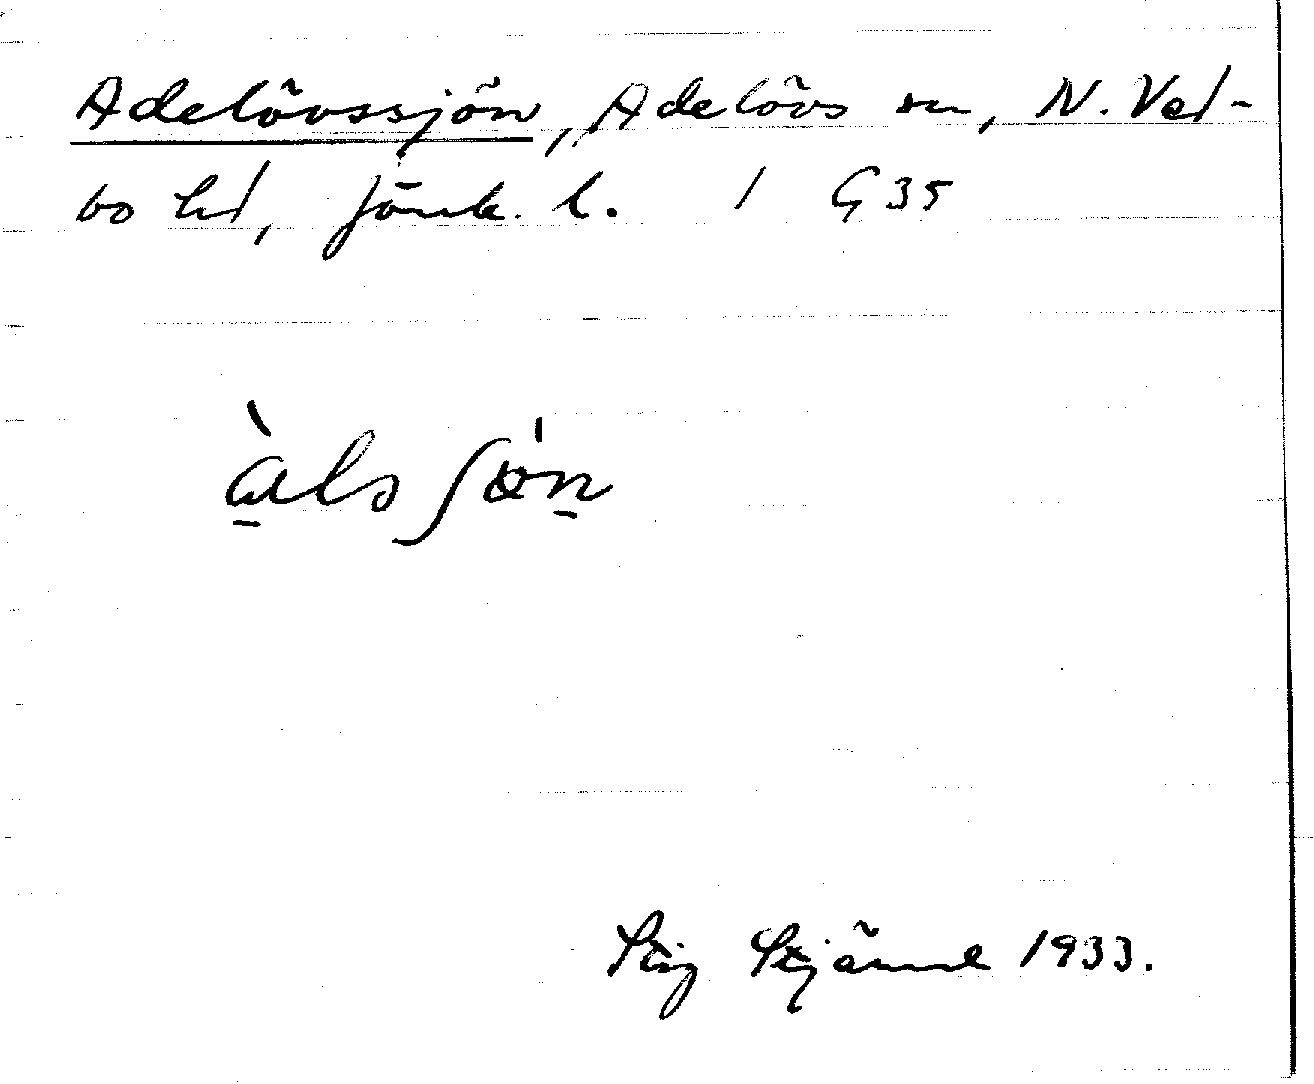 Adelövssjön, Adelövs sn, N. Ved-
bo hd, Jönk. l. 1 G 35
à̱lsʃøṉ
Stig Stjärne 1933.